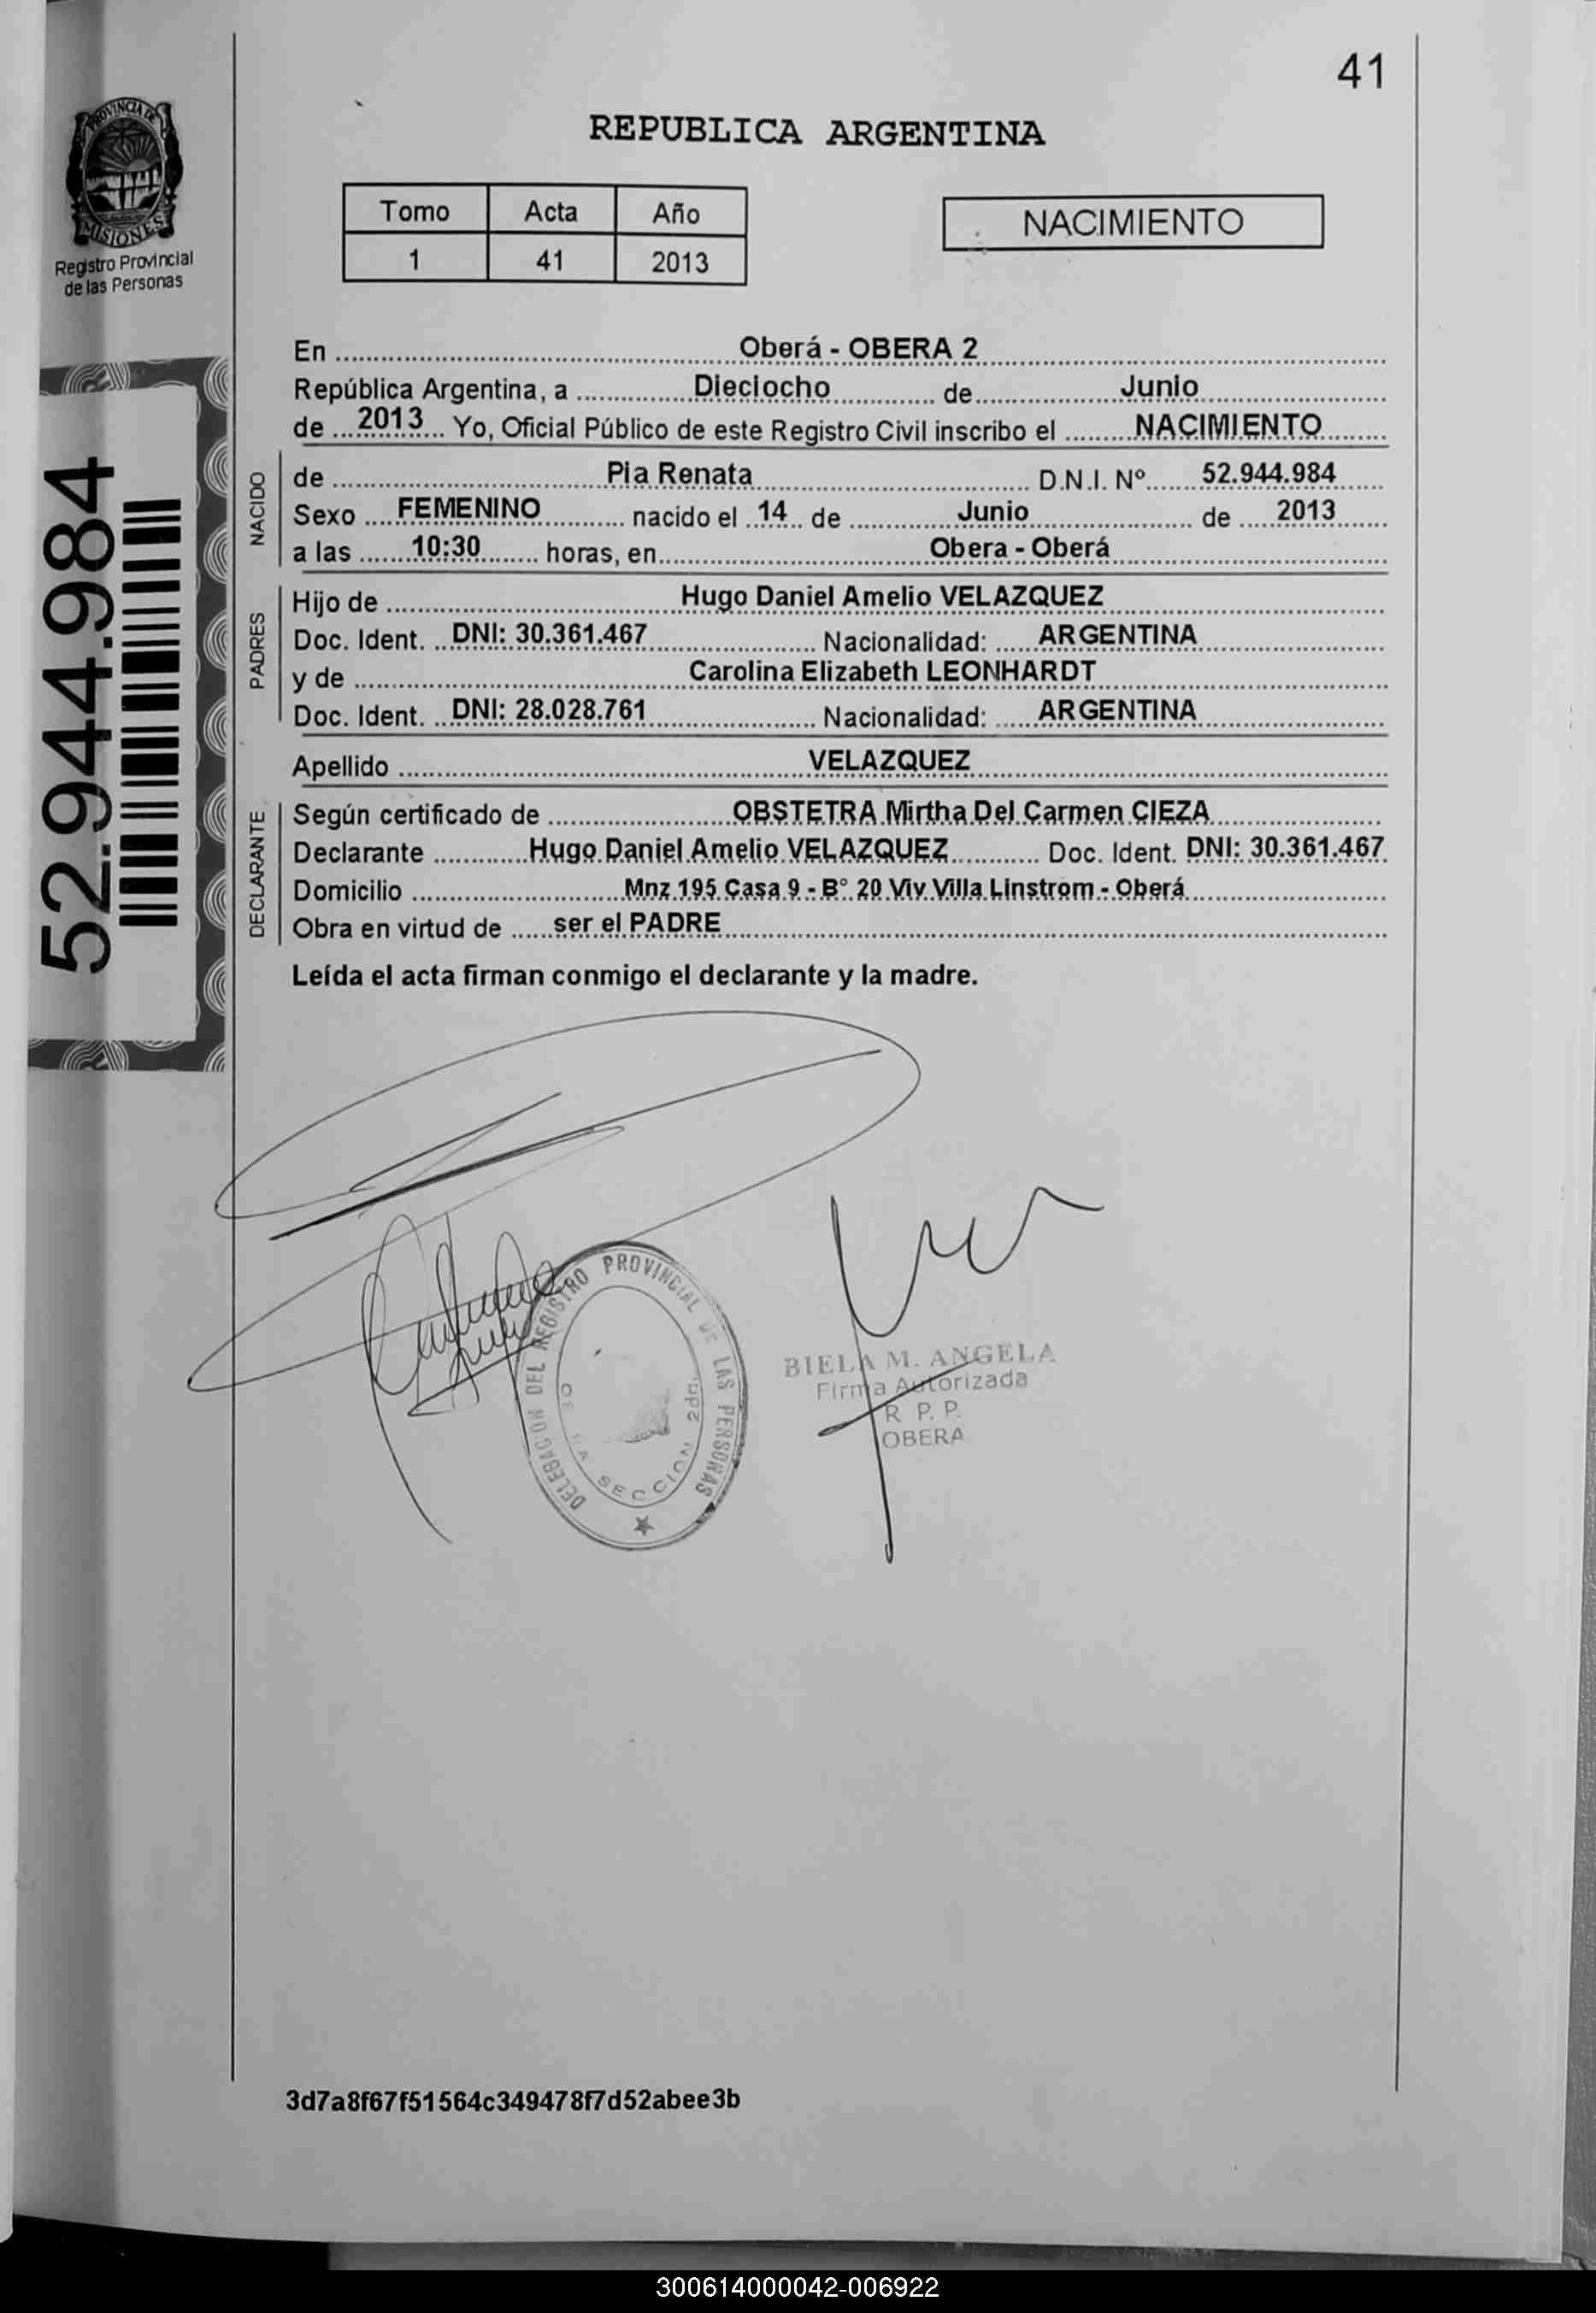 41
PROVINCIA DE
MISIONES
Registro Provincial
de las Personas
REPUBLICA ARGENTINA
Tomo Acta Año
1 41 2013
NACIMIENTO
52.944.984
En Oberá - OBERA 2
República Argentina, a Dieciocho de Junio
de 2013 Yo, Oficial Público de este Registro Civil inscribo el NACIMIENTO
NACIDO
de Pia Renata D.N.I. Nº 52.944.984
Sexo FEMENINO nacido el 14 de Junio de 2013
a las 10:30 horas, en Obera - Oberá
PADRES
Hijo de Hugo Daniel Amelio VELAZQUEZ
Doc. Ident. DNI: 30.361.467 Nacionalidad: ARGENTINA
y de Carolina Elizabeth LEONHARDT
Doc. Ident. DNI: 28.028.761 Nacionalidad: ARGENTINA
Apellido VELAZQUEZ
DECLARANTE
Según certificado de OBSTETRA Mirtha Del Carmen CIEZA
Declarante Hugo Daniel Amelio VELAZQUEZ Doc. Ident. DNI: 30.361.467
Domicilio Mnz 195 Casa 9 - B° 20 Viv Villa Linstrom - Oberá
Obra en virtud de ser el PADRE
Leída el acta firman conmigo el declarante y la madre.
DELEGACION DEL REGISTRO PROVINCIAL DE LAS PERSONAS
SECCION 2da.
BIELA M. ANGELA
Firma Autorizada
R P. P.
OBERA
3d7a8f67f51564c349478f7d52abee3b
300614000042-006922